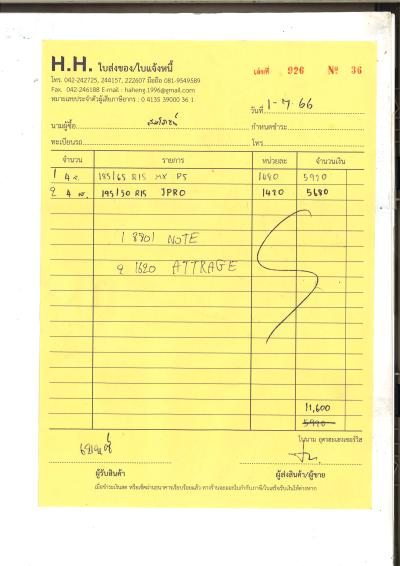 H.H. ใบส่งของ/ใบแจ้งหนี้
โทร. 042-242725, 244157, 222607 มือถือ 081-9549589
Fax. 042-246188 E-mail : haheng.1996@gmail.com
หมายเลขประจำตัวผู้เสียภาษีอากร : 0 4135 39000 36 1
เล่มที่ 926 Nº 36
วันที่ 1-7-66
นามผู้ซื้อ กำหนดชำระ
ทะเบียนรถ โทร
จำนวน รายการ หน่วยละ จำนวนเงิน
1 4 195/65 R15 MX P5 1480 5920
2 4 195/50 R15 JPRO 1420 5680
1 8801 NOTE
2 1620 ATTRAGE
11,600
5920
ในนาม อุดรสะแองเซอร์วิส
ผู้รับสินค้า ผู้ส่งสินค้า/ผู้ขาย